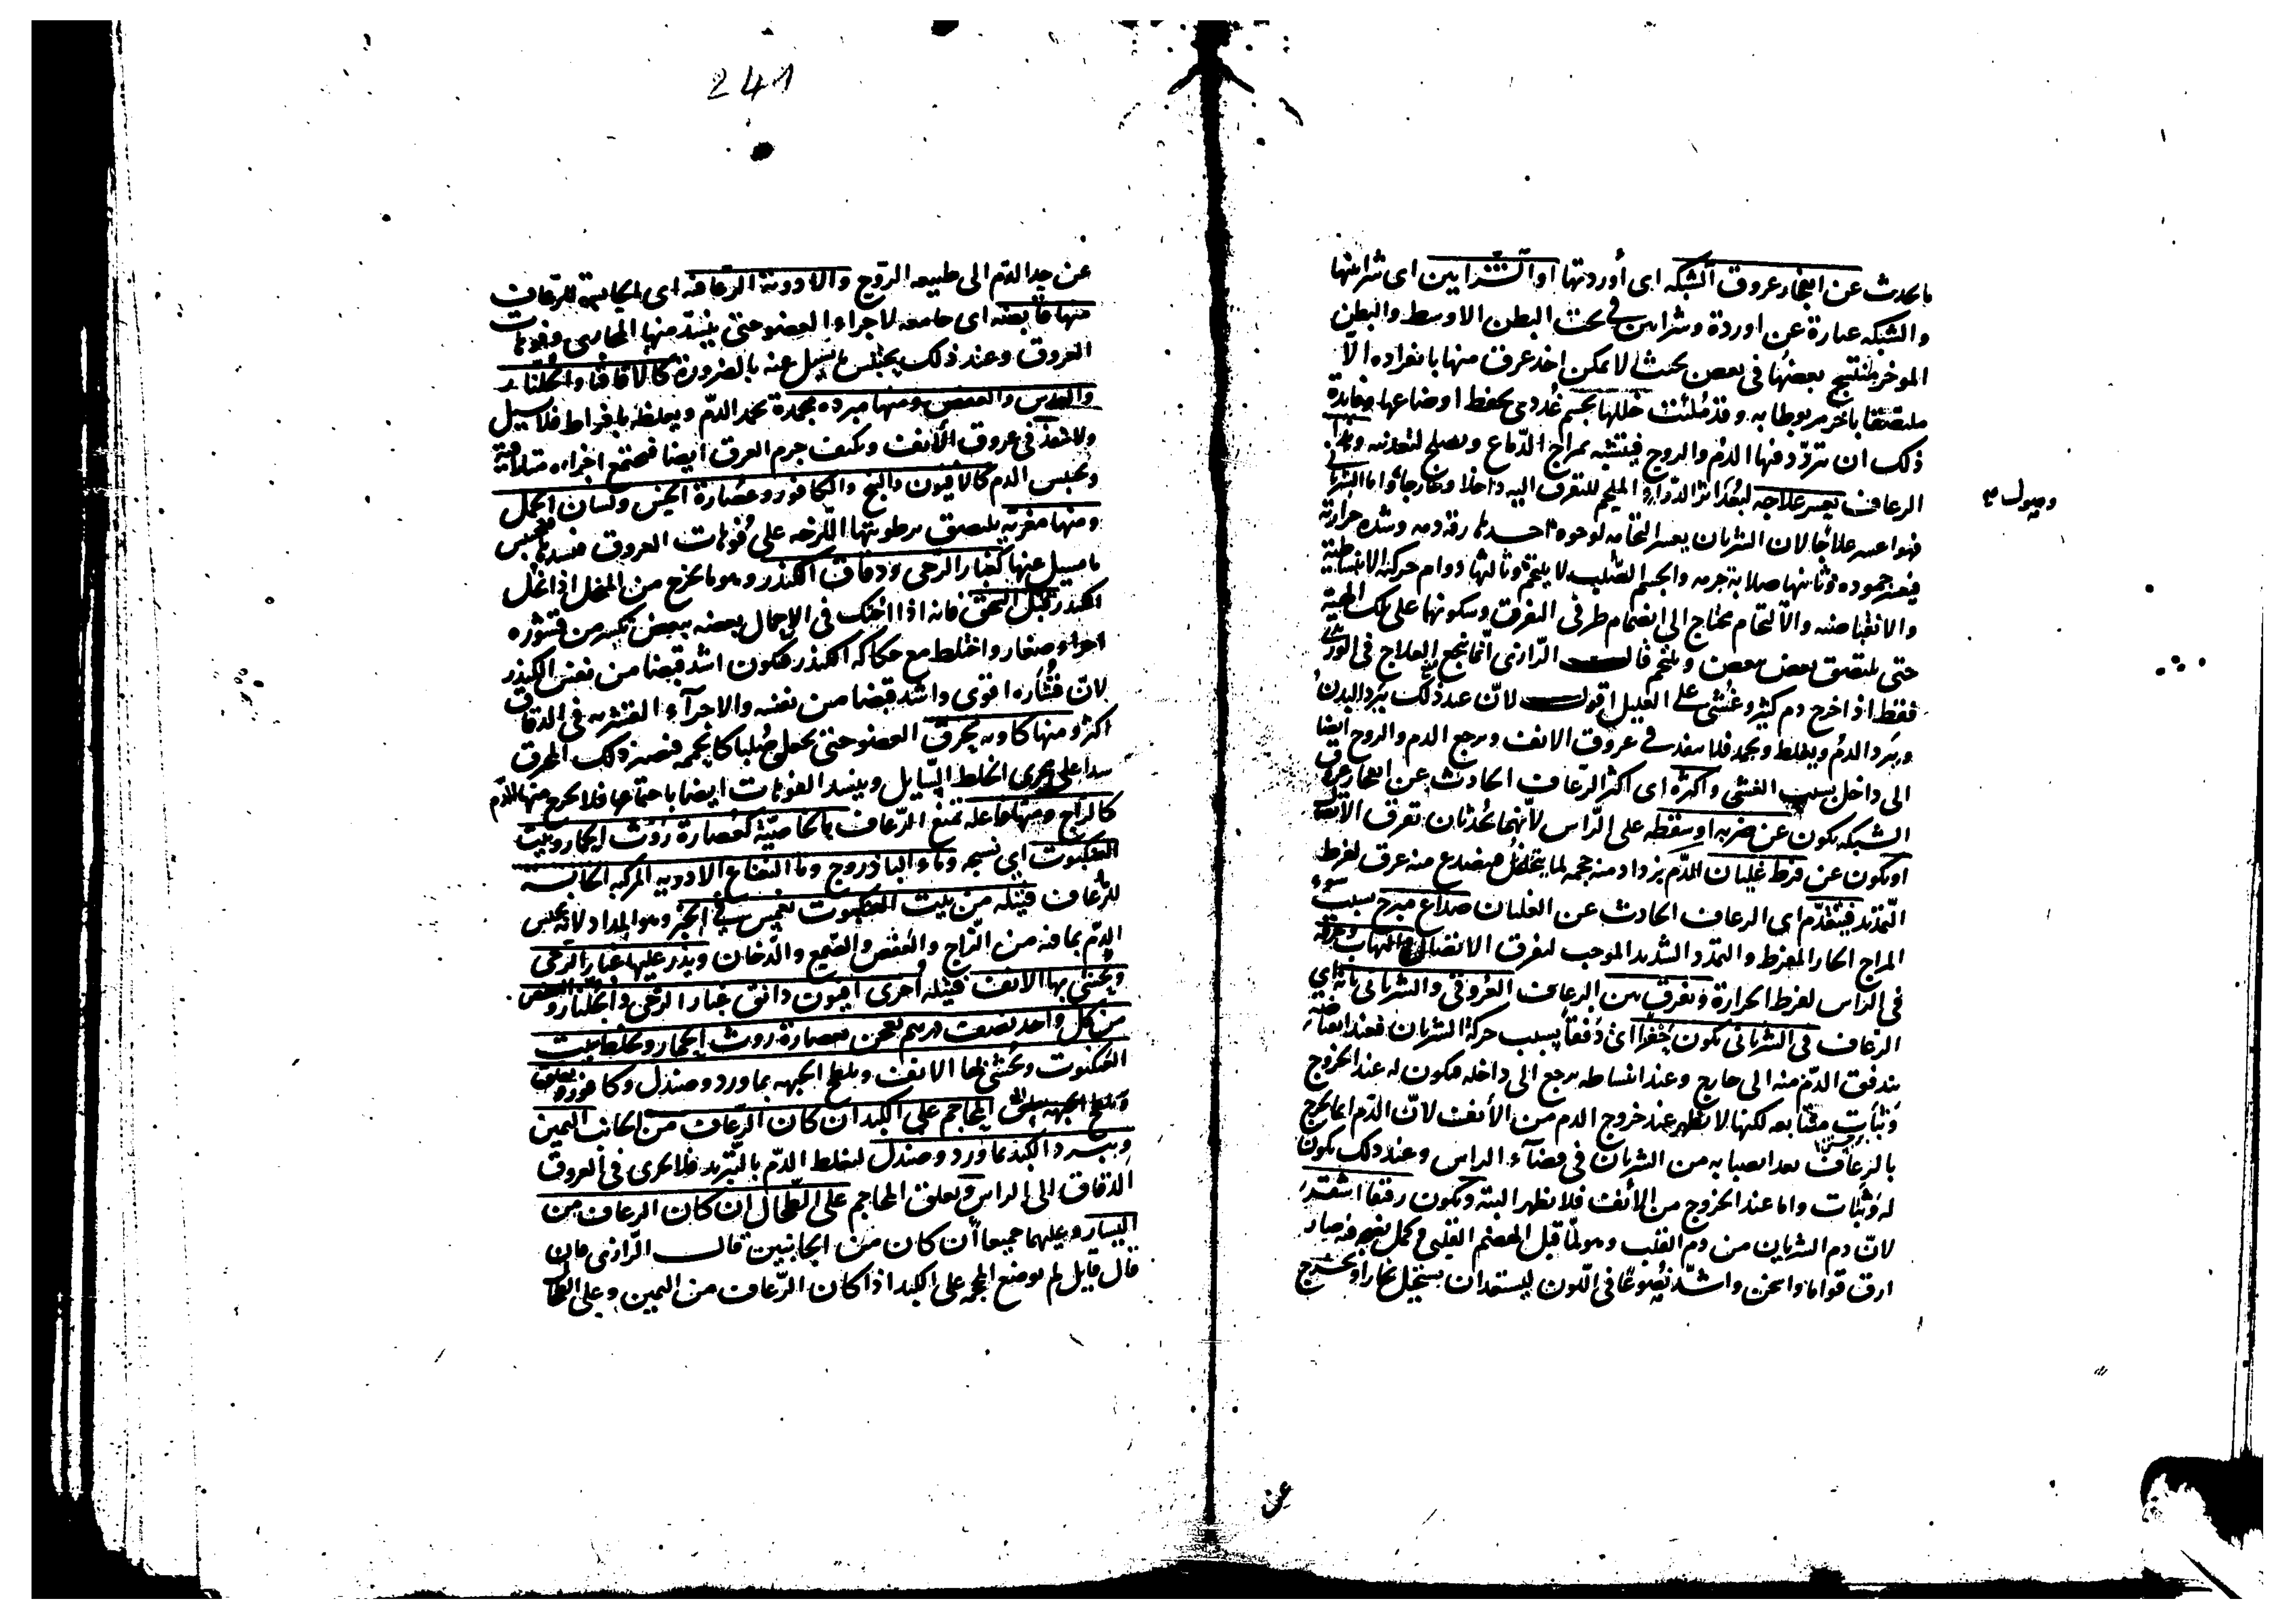 ما يحدث عن انفجار عروق الشبكه اى أوردتها او الشرايين اى شراينها
والشبكه عبارة عن اوردة وشرايين فى تحت البطن الاوسط والبطن
الموخر منتسج بعضها فى بعض بحيث لا يمكن اخذ عرق منها بانفراده الّا
ملتصقا باخر مربوطا به وقد مُلئت خللها بجسم غُددى يحفظ اوضاعها وفايدة
ذلك ان يتردّد فيها الدم والروح فيتشبه بمزاج الدّماغ ويصلح لتغذيته وهذا
الرعاف يعسر علاجه لبُعد اثر الدوا الملحم للتفرق اليه داخلا وخارجا واما الشريانى
وصول صح
فهو اعسر علاجا لان الشريان يعسر التحامه لوجوه احدها رقة دمه وشدة حرارته
فيعسر جموده وثانيها صلابة جرمه والجسم الصّلب لا يلتحم وثالثها دوام حركته الانبساطية
والانقباضيه والالتحام يحتاج الى انضمام طرفى التفرق وسكونها على تلك الهيئة
حتى يلتصق بعض ببعض ويلتحم قال الرازى انّما ينجع العلاج فى الوريدى
فقط اذا خرج دم كثير وغُشى على العليل اقول لانّ عند ذلك يبرد البدن
ويبرد الدم ويغلظ ويجمد فلا ينفذ فى عروق الانف ويرجع الدم والروح ايضا
الى داخل بسبب الغشى واكثره اى اكثر الرّعاف الحادث عن انفجار عروق
الشبكه يكون عن ضربه او سقطه على الراس لانّهما يُحدثان تفرق الاتصال
او يكون عن فرط غليان الدّم يزداد منه حجمه لما يتخلخل فينصدع منه عرق لفرط
التمدّد فيتقدّم اى الرعاف الحادث عن الغليان صداع مبرح بسبب سوء
المزاج الحار المفرط والتمدّد الشديد الموجب لتفرق الاتصال والتهاب وحرقه
فى الراس لفرط الحرارة ويفرق بين الرعاف العروقى والشريانى بانه اى
الرعاف فى الشريانى يكون حفزا اى دفعا بسبب حركة الشريان فعند انقباضه
يندفق الدّم منه الى خارج وعند انبساطه يرجع الى داخله فيكون له عند الخروج
وثبات متتابعه لكنها لا تظهر عند خروج الدم من الأنف لانّ الدّم انما يخرج
بالرعاف بعد انصبابه من الشريان فى فضآء الراس وعند ذلك يكون
له وثبات واما عند الخروج من الأنف فلا يظهر البته ويكون رقيقا اشقر
لانّ دم الشريان من دم القلب وهو لمّا قبل الهضم القلبى وكمل نضجه فيه صار
ارق قواما واسخن واشدّ نصوعا فى اللون ليستعد ان يستحيل بخارا ويخرج
عن
241
عن حد الدّم الى طبيعه الرّوح والادوية الرّعافه اى الحابسة للرّعاف
منها قابضه اى جامعه لاجزاء العضو حتى ينسد منها المجارى وفوهات
العروق وعند ذلك يحتبس ما يسيل عنه بالضرورة كالاقاقيا والجلنار
والعدس والعفص ومنها مبرده مجمدة تجمد الدّم ويغلظه بافراط فلا يسيل
ولا ينفذ فى عروق الأنف ويكثف جرم العرق ايضا فيجتمع اجزاءه متلاقية
ويحبس الدم كالافيون والبنج والكافور وعصارة الخس ولسان الحمل
ومنها مغريه يلتصق برطوبتها اللزجه على فُوهات العروق فيسدها فيحبس
ما يسيل عنها كغبار الرحى ودقاق الكندر وهو ما يخرج من المنخل اذا نخل
الكندر قبل السحق فانه اذا احتك فى الاحمال بعضه ببعض تكسر من قشوره
اجزاء صغار واختلط مع حكاكه الكندر فيكون اشد قبضا من نفس الكندر
لانّ قُشاره اقوى واشد قبضا من نفسه والاجزآء القشريه فى الدقاق
اكثر ومنها كاويه تحرق العضو حتى تجعل صُلبا كالحممه فيصير ذلك المحرق
سدا على مجرى الخلط السّايل وينسد الفوهات ايضا باجتماعها فلا يخرج منها الدّم
كالزاج ومنها فاعله تمنع الرّعاف بالخاصيّة كعصارة رَوث الحمار وبيت
العنكبوت اى نسجه وماء الباذروج وماء النعناع الادويه المركبه الحابسه
للرّعاف فتيله من بيت العنكبوت تغمس فى الحبر وهو المداد لانّه يحبس
الدّم بما فيه من الزّاج والعفص والصّمغ والدّخان ويذر عليها غبار الرحى
ويُحشى بها الانف فتيله أخرى افيون دانق غبار الرحى والجلنار والعفص
من كل واحد نصف درهم يعجن بعصارة روث الحمار ويخلط ببيت
العنكبوت ويحشى بها الانف ويلطخ الجبهه بماورد وصندل وكافور ويعلق
المحاجم على الكبد ان كان الرّعاف من الجانب اليمين
ويبرد الكبد بماورد وصندل ليغلظ الدّم بالتبريد فلا يجرى فى العروق
الدقاق الى الراس ويعلق المحاجم على الطحال ان كان الرعاف من
اليسار وعليهما جميعا ان كان من الجانبين قال الرّازى فان
قال قايل لم توضع المحجمه على الكبد اذا كان الرّعاف من اليمين وعلى الطحال